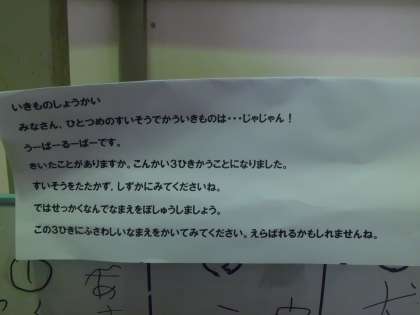 いきものしょうかい
みなさん、ひとつめのすいそうでかういきものは・・・じゃじゃん！
うーぱーるーぱーです。
きいたことがありますか。こんかい３ひきかうことになりました。
すいそうをたたかず、しずかにみてくださいね。
ではせっかくなんでなまえをぼしゅうしましょう。
この３ひきにふさわしいなまえをかいてみてください。えらばれるかもしれませんね。
①